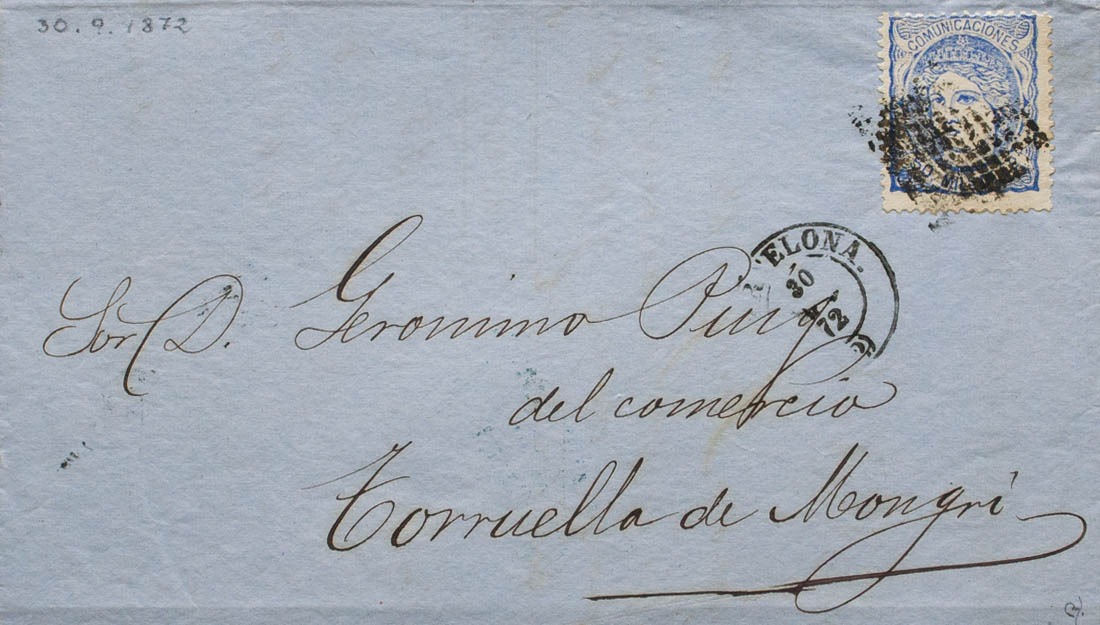 30. 9. 1872
COMUNICACIONES
50 MIL
ELONA.
30
72
Sor D. Geronimo Puig
del comercio
Torruella de Mongrí